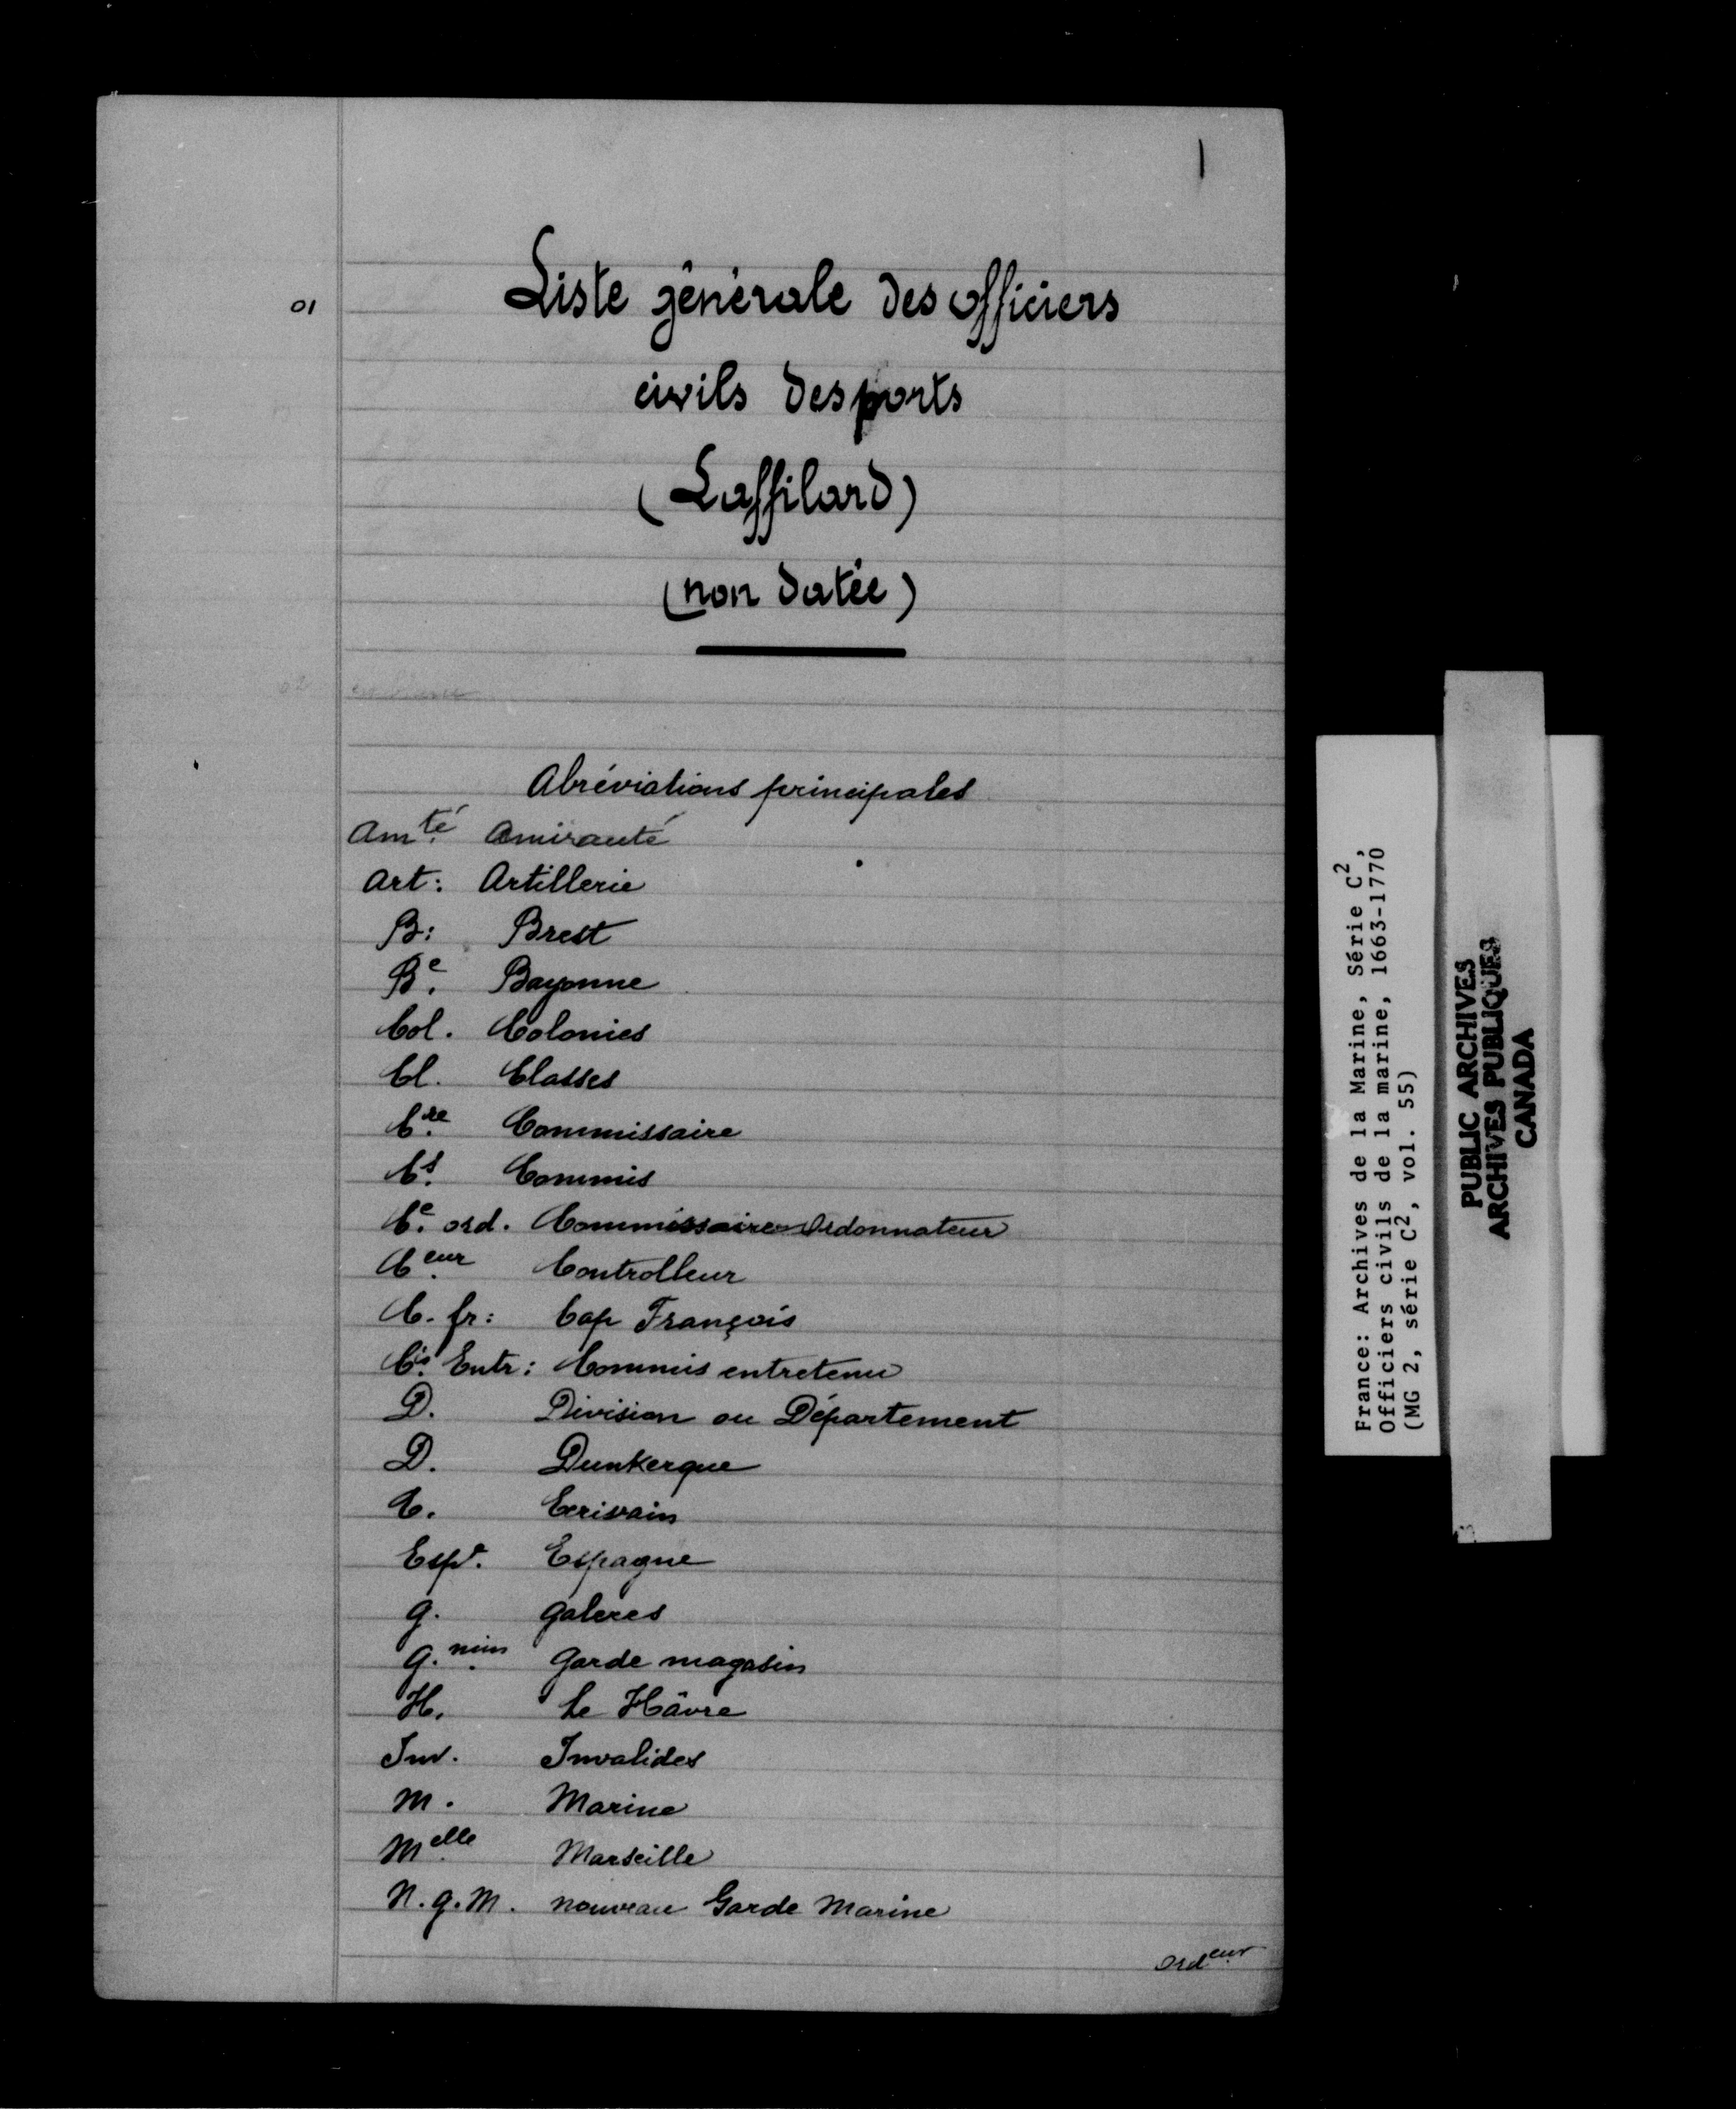 1
01
Liste générale des officiers
civils des ports
(Laffilard)
(non datée)
02
Abréviations principales
Amté. Amirauté
Art: Artillerie
B: Brest
Be. Bayonne
Col. Colonies
Cl. Classes
Cre. Commissaire
Cs. Commis
Ce. ord. Commissaire Ordonnateur
Ceur. Controlleur
C. fr: Cap François
Cis. Entr: Commis entretenu
D. Division ou Département
D. Dunkerque
E. Ecrivain
Espe. Espagne
G. Galeres
G. min. Garde magasin
H. Le Hâvre
Inv. Invalides
M. Marine
Melle. Marseille
N. G. M. Nouveau Garde Marine
Ordeur.
France: Archives de la Marine, Série C2,
Officiers civils de la marine, 1663-1770
(MG 2, série C2, vol. 55)
PUBLIC ARCHIVES
ARCHIVES PUBLIQUES
CANADA